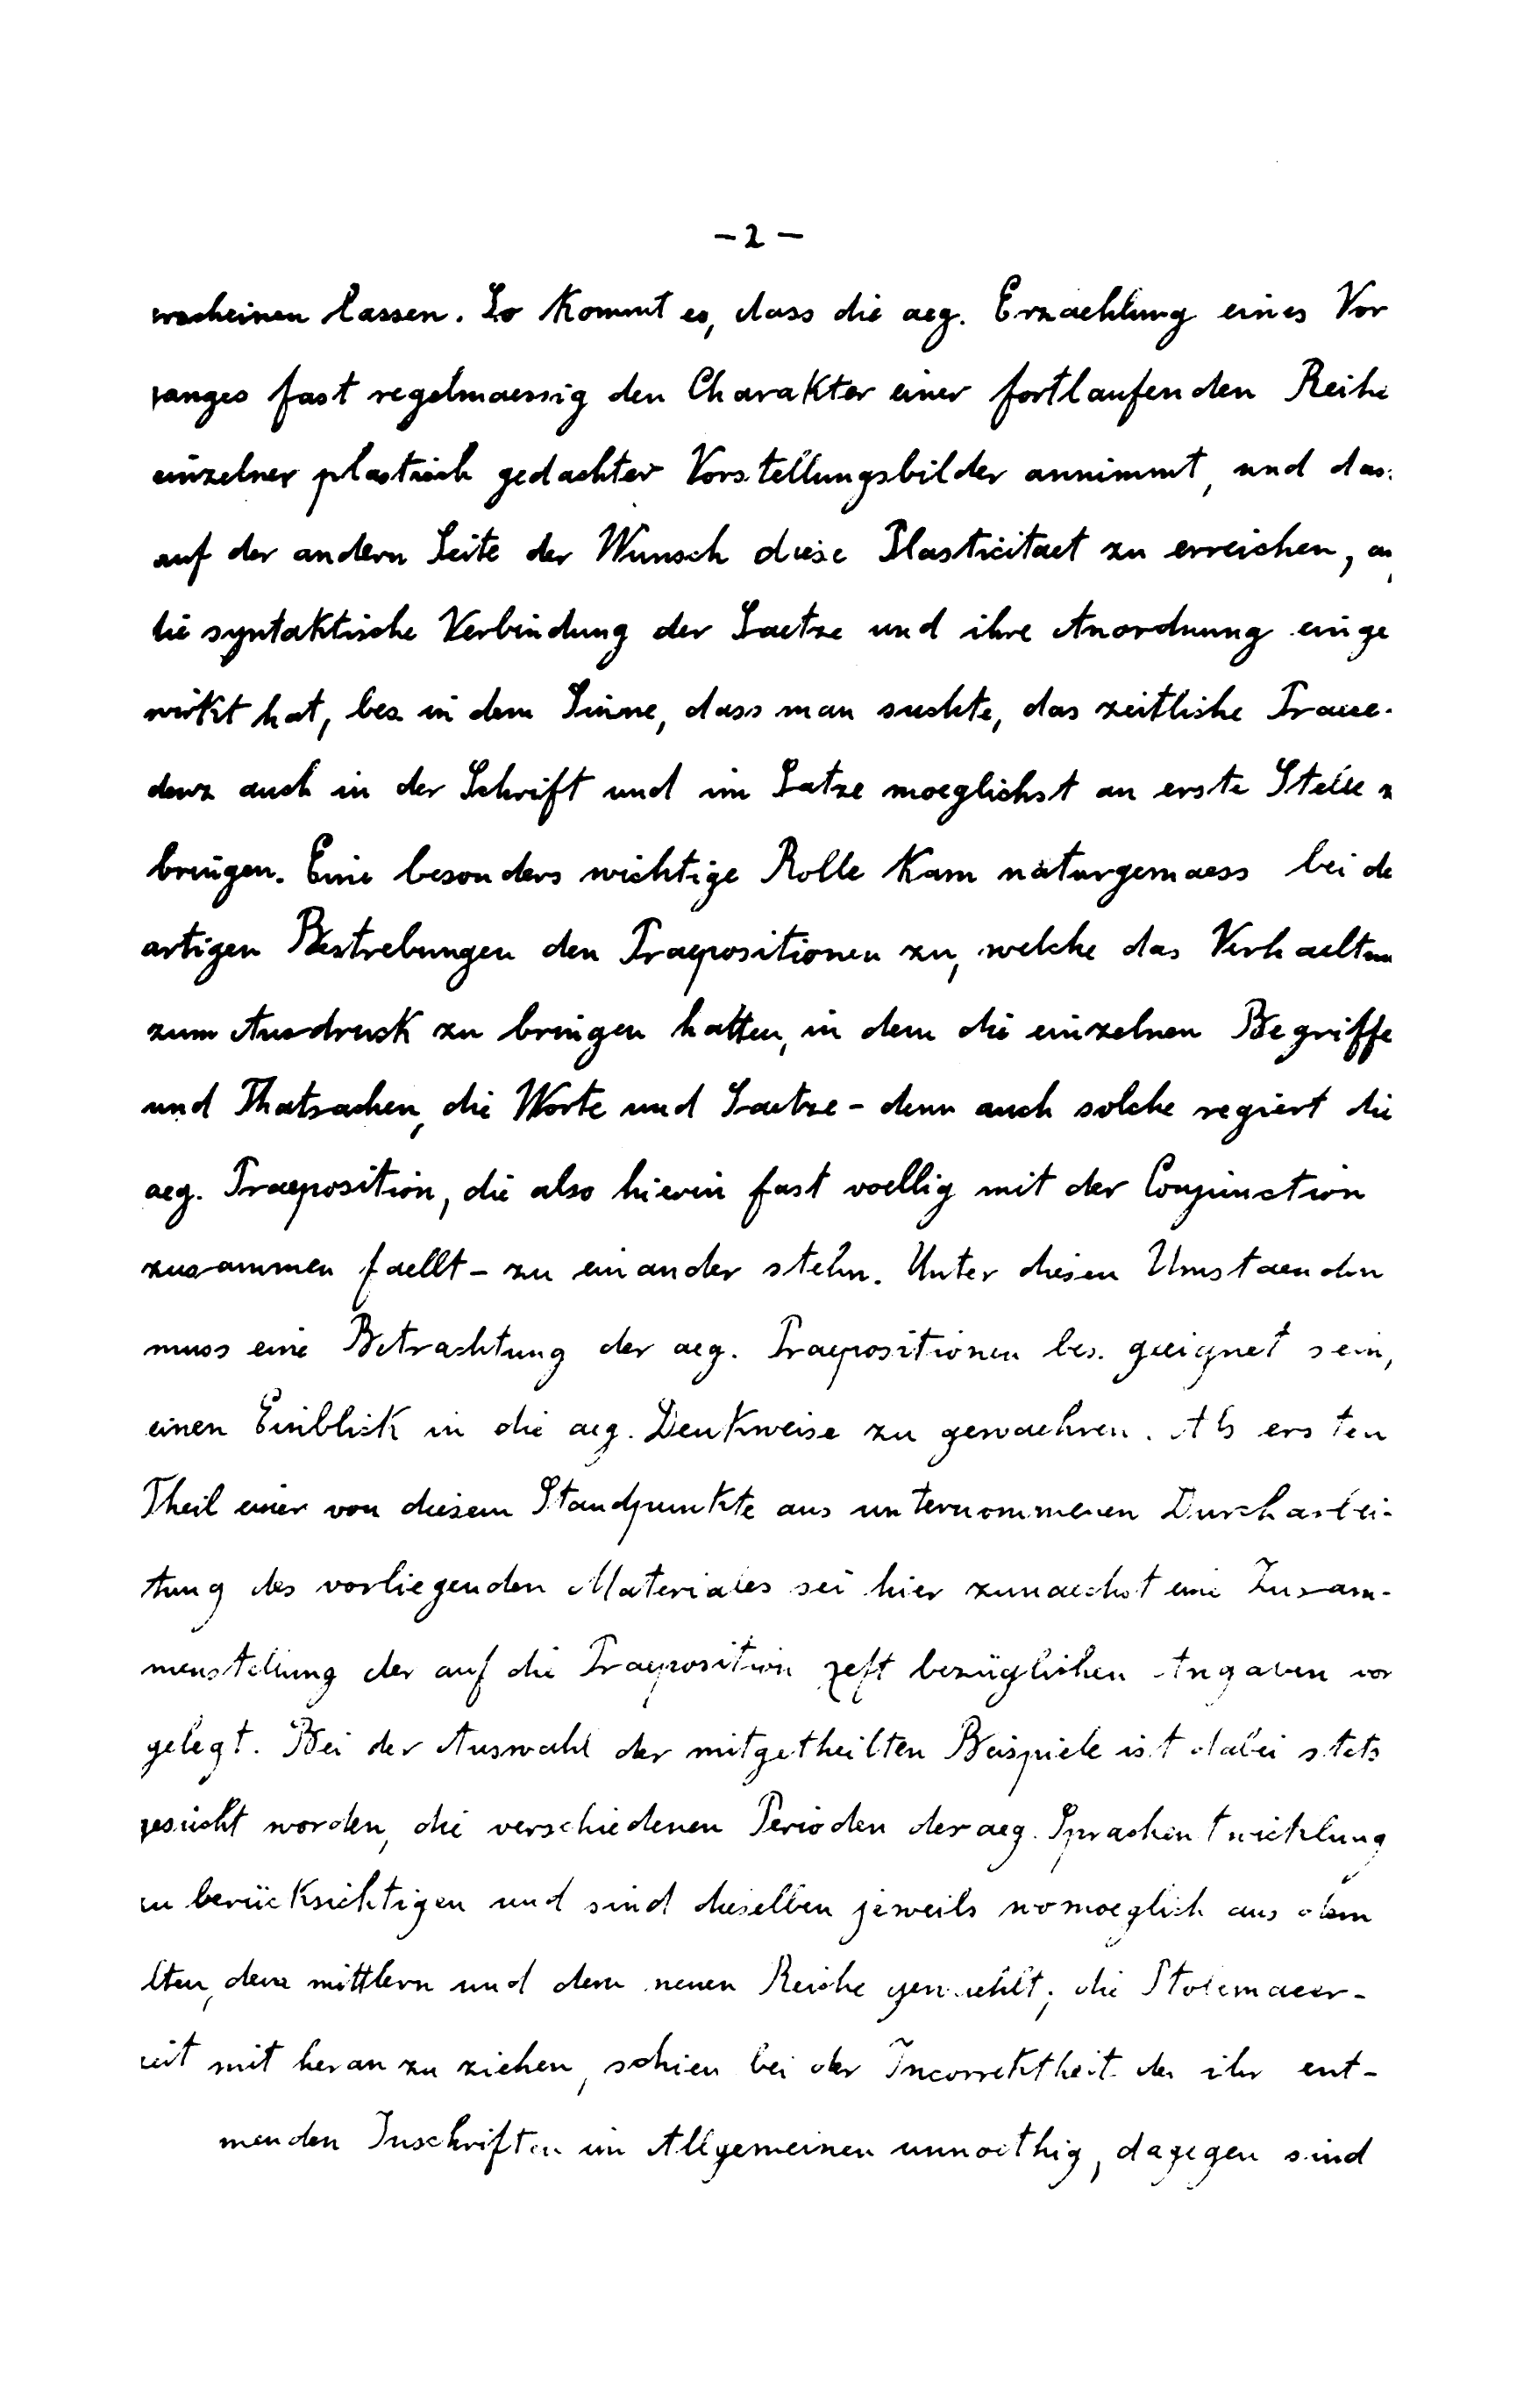 - 2 -
erscheinen lassen. So kommt es, dass die aeg. Erzaehlung eines Vor
ganges fast regelmaessig den Charakter einer fortlaufenden Reihe
einzelner plastisch gedachter Vorstellungsbilder annimmt, und das
auf der andern Seite der Wunsch diese Plasticitaet zu erreichen, au
die syntaktische Verbindung der Saetze und ihre Anordnung einge
wirkt hat, bes. in dem Sinne, dass man suchte, das zeitliche Praece-
denz auch in der Schrift und im Satze moeglichst an erste Stelle z
bringen. Eine besonders wichtige Rolle kam naturgemaess bei de
artigen Bestrebungen den Praepositionen zu, welche das Verhaeltn
zum Ausdruck zu bringen hatten, in dem die einzelnen Begriffe
und Thatsachen, die Worte und Saetze - denn auch solche regiert die
aeg. Praeposition, die also hierin fast voellig mit der Conjunction
zusammen faellt - zu einander stehn. Unter diesen Umstaenden
muss eine Betrachtung der aeg. Praepositionen bes. geeignet sein,
einen Einblick in die aeg. Denkweise zu gewaehren. Als ersten
Theil einer von diesem Standpunkte aus unternommenen Durcharbei-
tung des vorliegenden Materiales sei hier zunaechst eine Zusam-
menstellung der auf die Praeposition χeft bezüglichen Angaben vor
gelegt. Bei der Auswahl der mitgetheilten Beispiele ist dabei stets
gesucht worden, die verschiedenen Perioden der aeg. Sprachentwicklung
zu berücksichtigen und sind dieselben jeweils womoeglich aus dem
lten, dem mittlern und dem neuen Reiche gewaehlt; die Ptolemaeer-
zeit mit heran zu ziehen, schien bei der Incorrektheit der ihr ent-
menden Inschriften im Allgemeinen unnoethig, dagegen sind